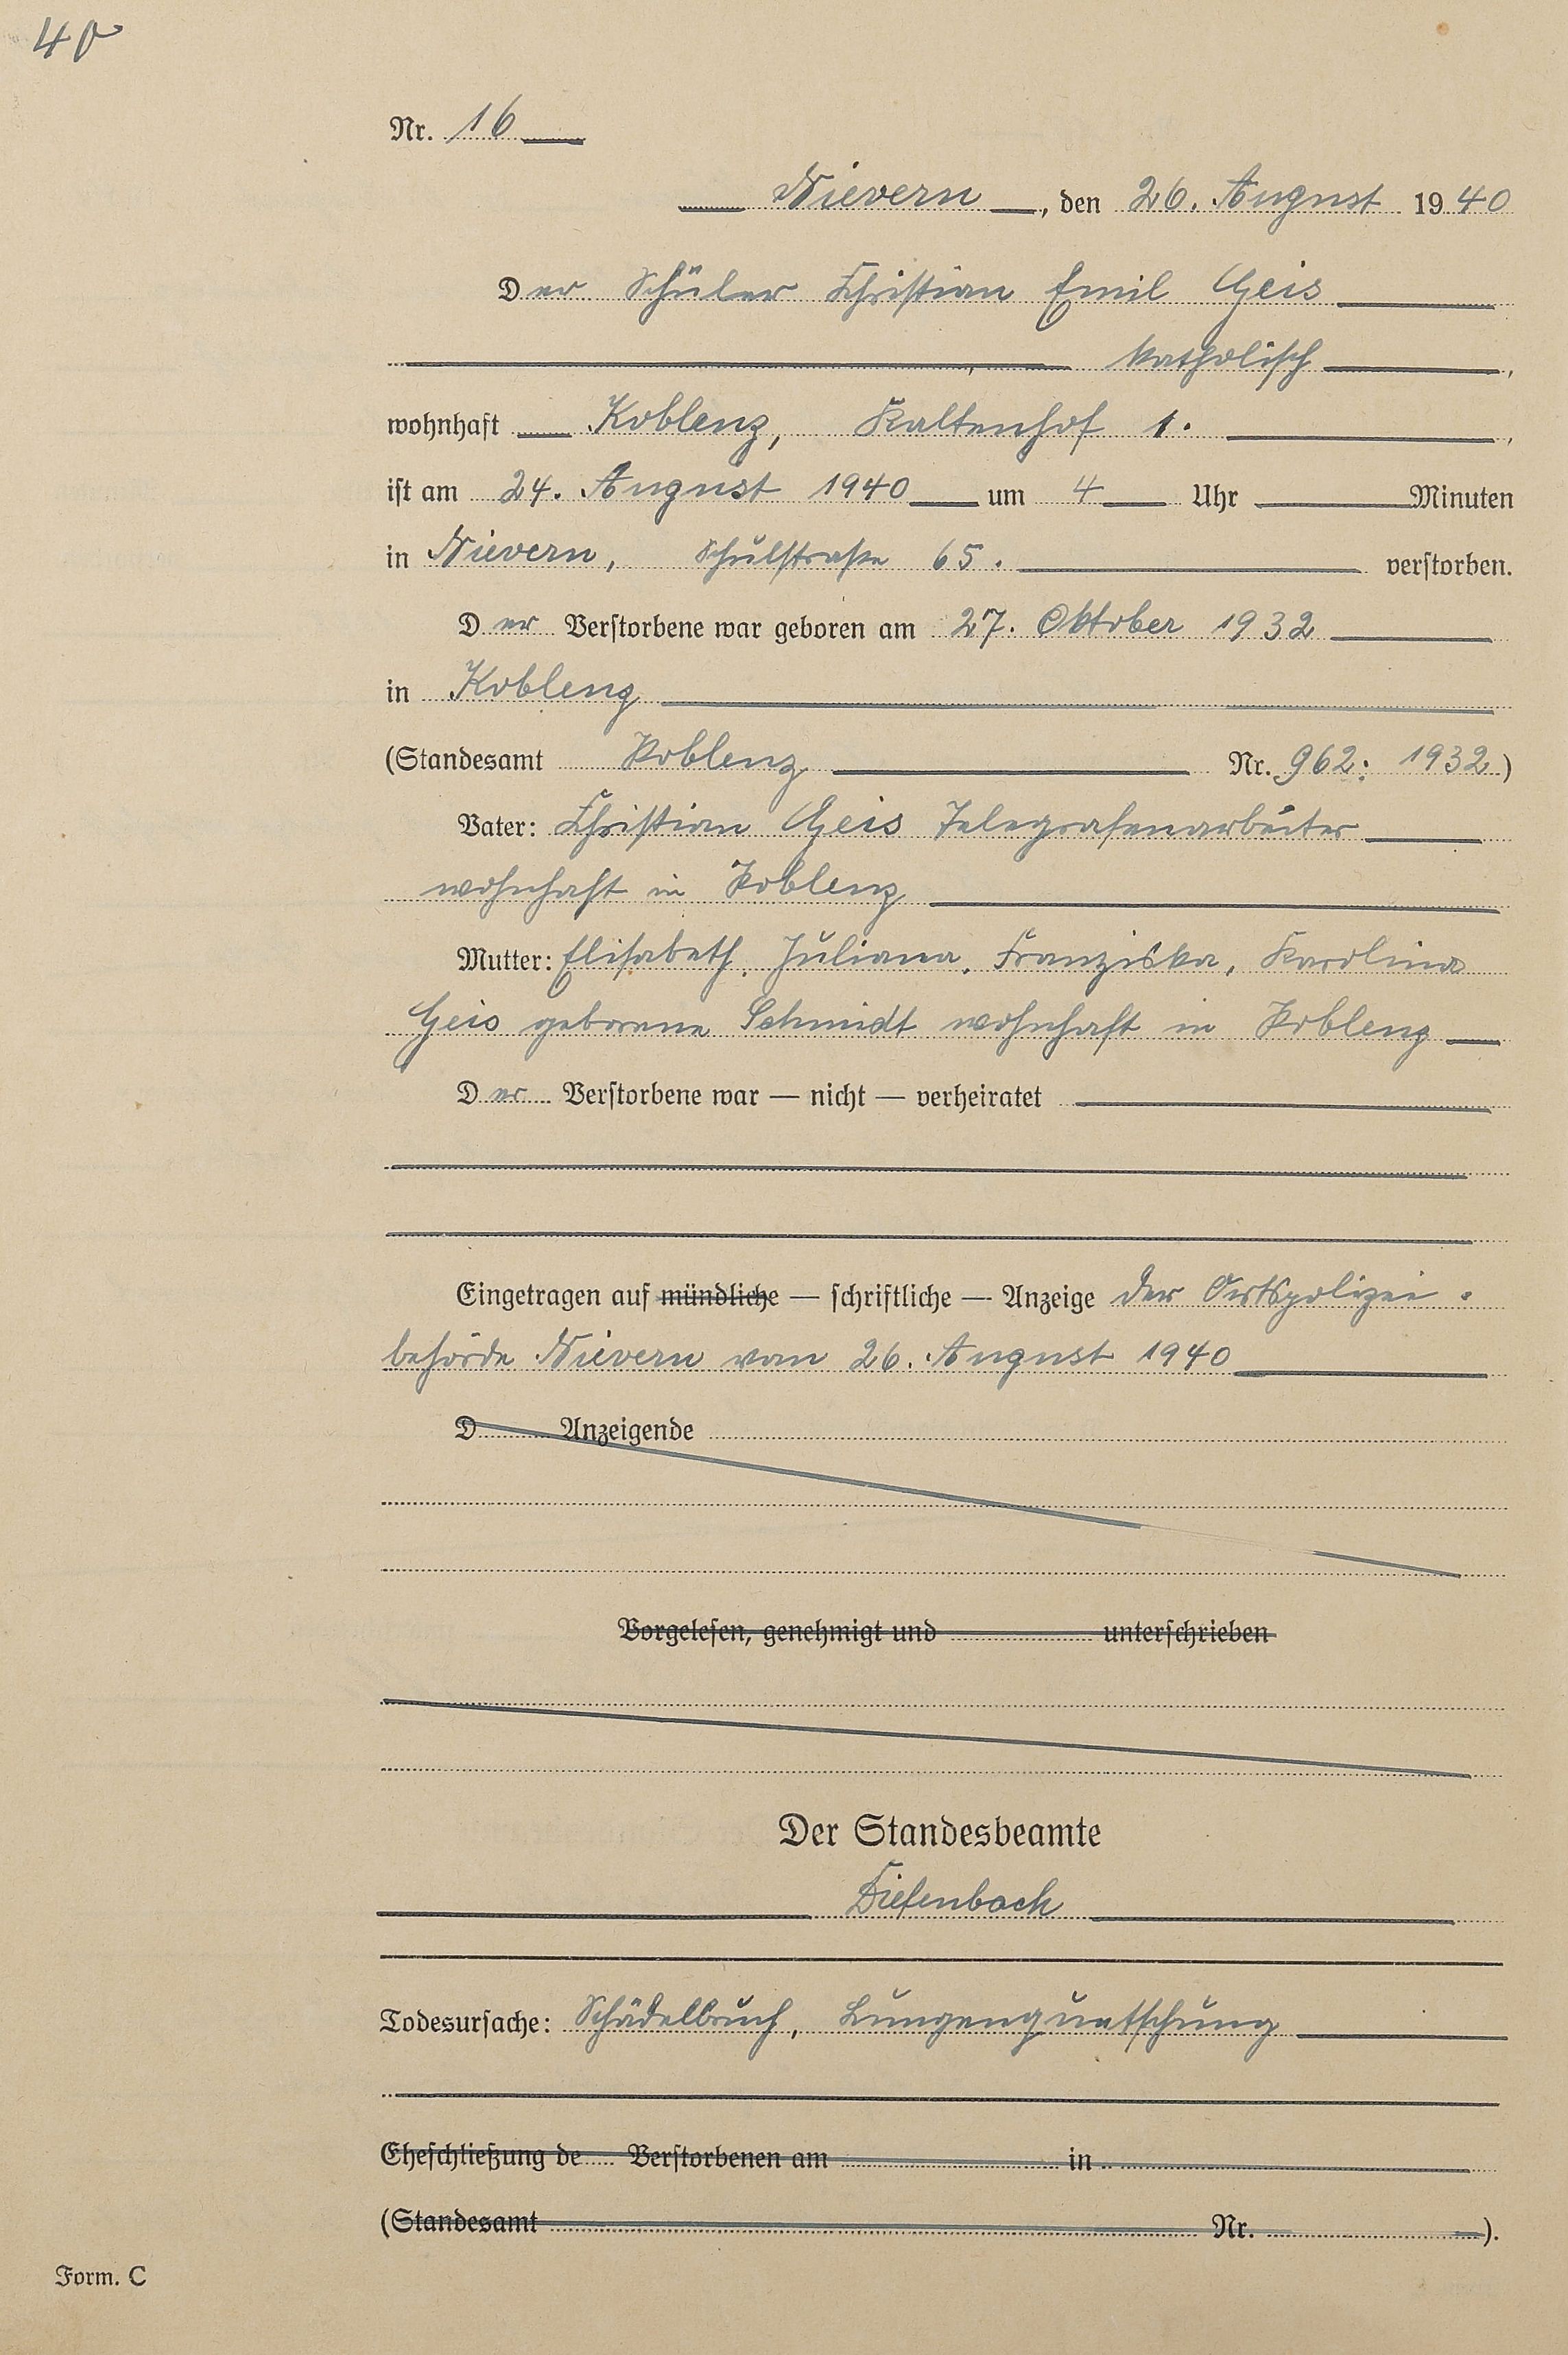 Nr. 16
Nievern, den 26. August 1940
Der Schüler Christian Emil Geis
, katholisch,
wohnhaft Koblenz, Kaltenhof 1. ,
ist am 24. August 1940 um 4 Uhr Minuten
in Nievern, Schulstraße 65. verstorben.
Der Verstorbene war geboren am 27. Oktober 1932
in Koblenz
(Standesamt Koblenz Nr. 962: 1932)
Vater: Christian Geis Telegrafenarbeiter
wohnhaft in Koblenz
Mutter: Elisabeth, Juliana, Franziska, Karolina
Geis geborene Schmidt wohnhaft in Koblenz
Der Verstorbene war — nicht — verheiratet
Eingetragen auf mündliche — schriftliche — Anzeige der Ortspolizei-
behörde Nievern vom 26. August 1940
D Anzeigende
Vorgelesen, genehmigt und unterschrieben
Der Standesbeamte
Diefenbach
Todesursache: Schädelbruch, Lungenquetschung
Eheschließung de Verstorbenen am in
(Standesamt Nr. ).
Form. C